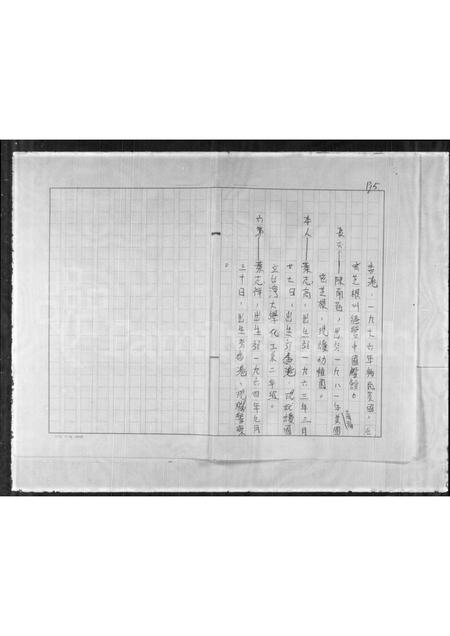 135
香港,一九七六年移民美國,在
密芝根州經營中國餐館。
長女——陳南茜,出生一九八一年美國
密芝根,現讀幼稚園。
本人——葉志高,出生於一九六三年三月
廿七日,出生於香港,現就讀國
立台灣大學化工系二年級。
六弟——葉志輝,出生於一九六四年七月
三十日,出生於香港,現職警察
。